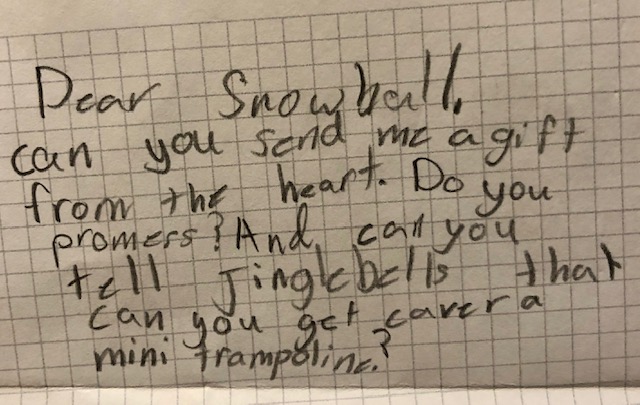 Dear Snowball,
can you send me a gift
from the heart. Do you
promers? And can you
tell Jinglebells that
can you get caver a
mini trampoline?